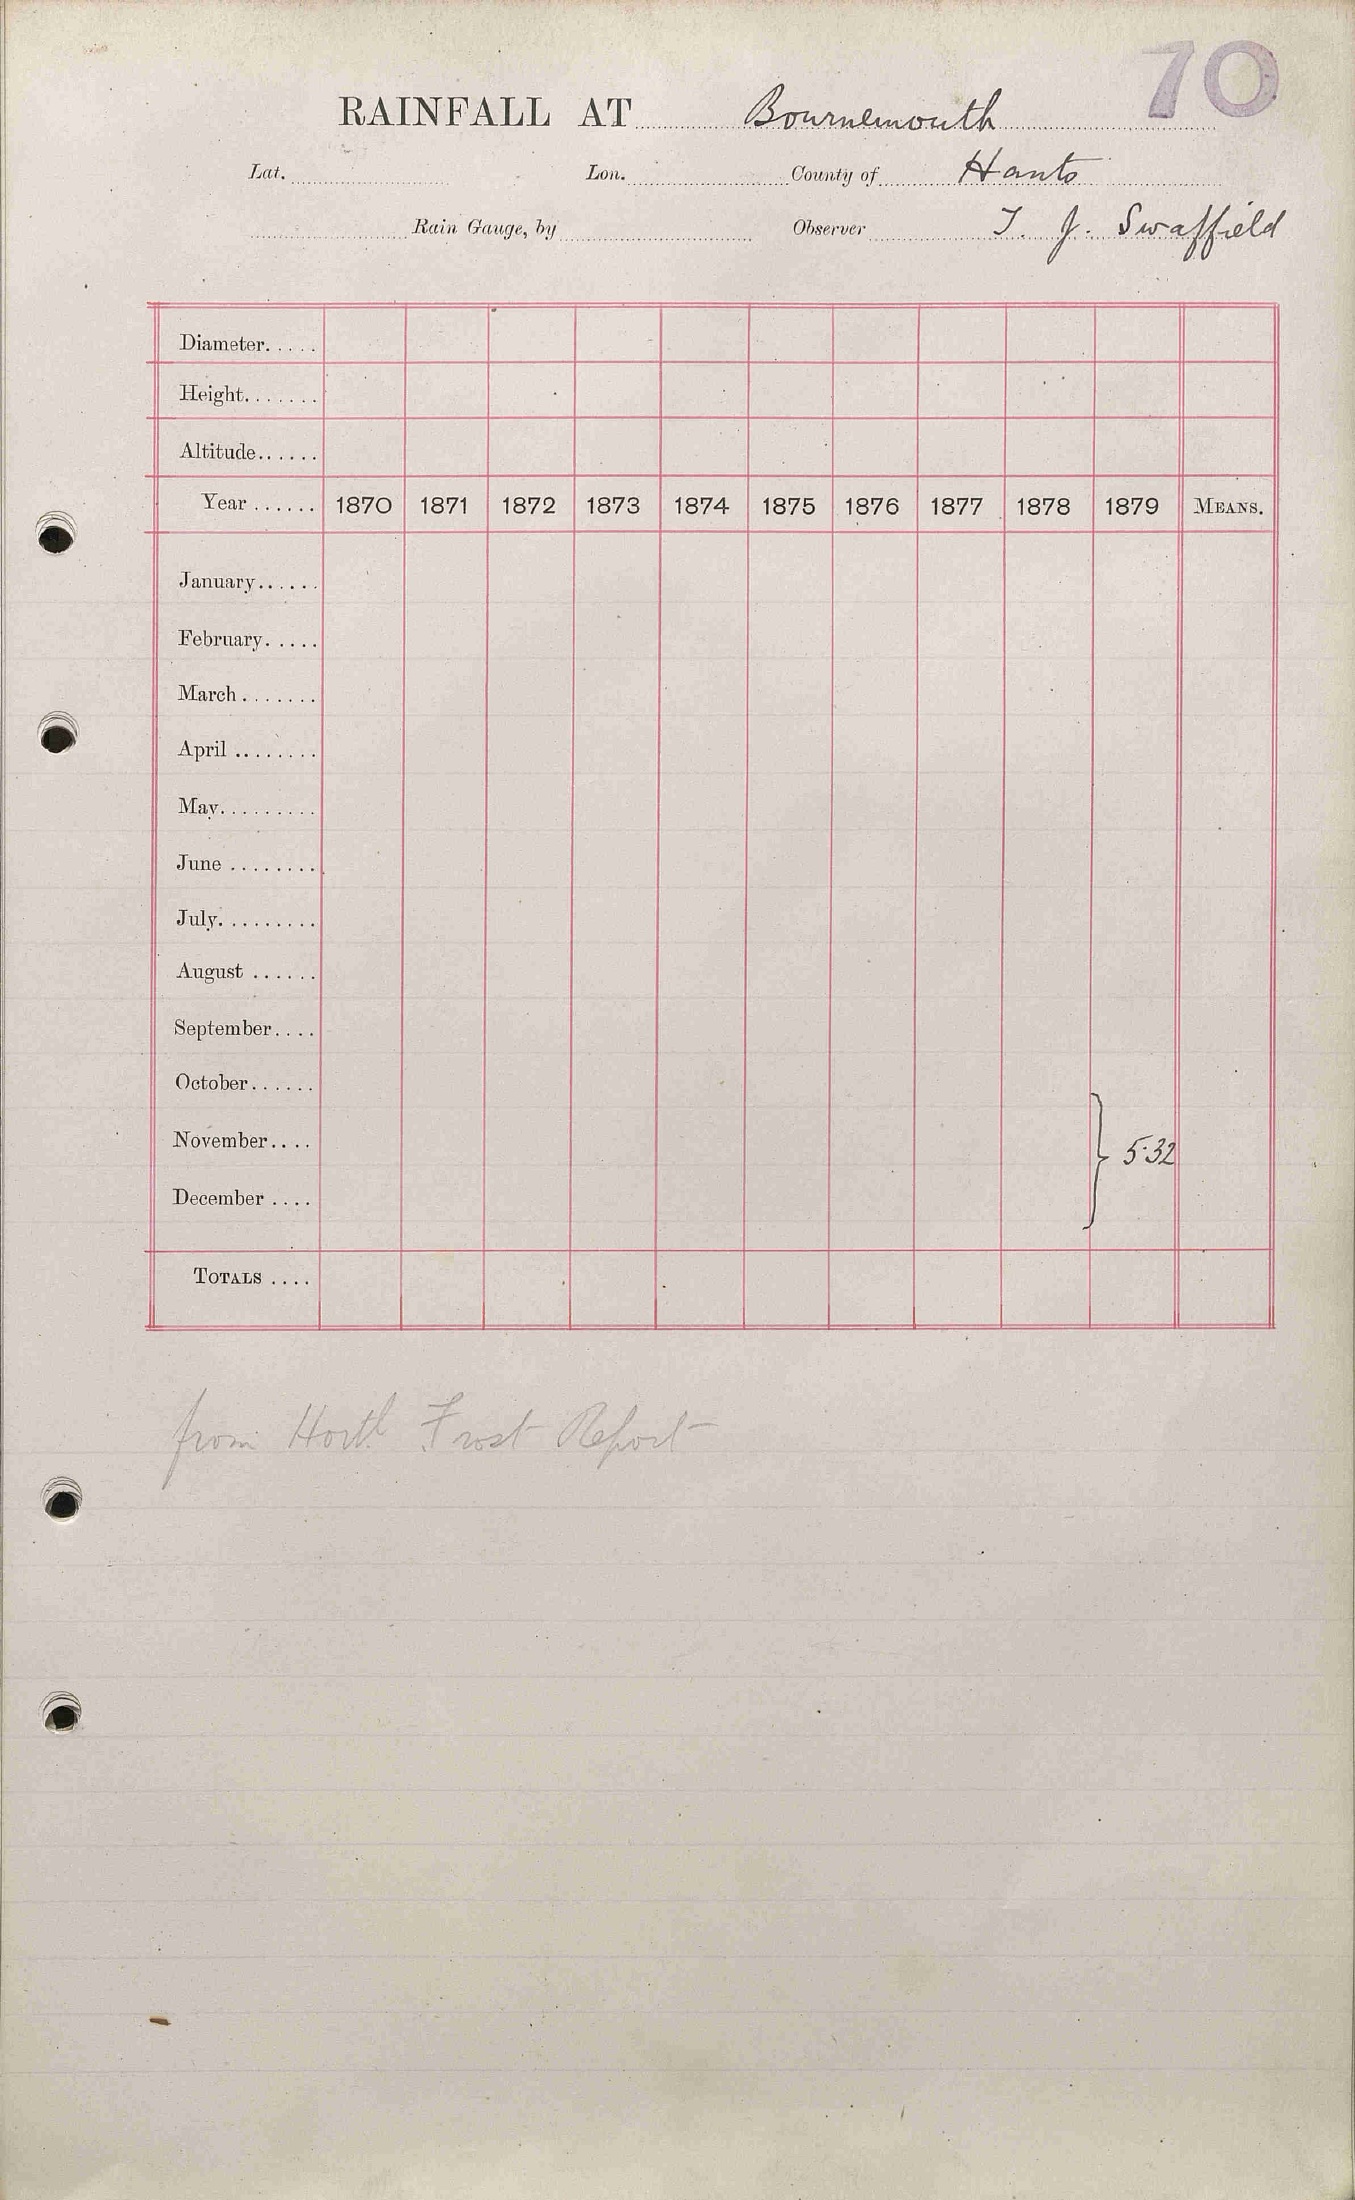 70
RAINFALL AT Bournemouth
Lat. Lon. County of Hants
Rain Gauge, by Observer T. J. Swaffield
Diameter.....
Height.......
Altitude......
Year ...... 1870 1871 1872 1873 1874 1875 1876 1877 1878 1879 MEANS.
January......
February.....
March.......
April ........
May.........
June ........
July.........
August ......
September....
October......
November.... } 5.32
December ....
TOTALS ....
from Hortl Frost Report